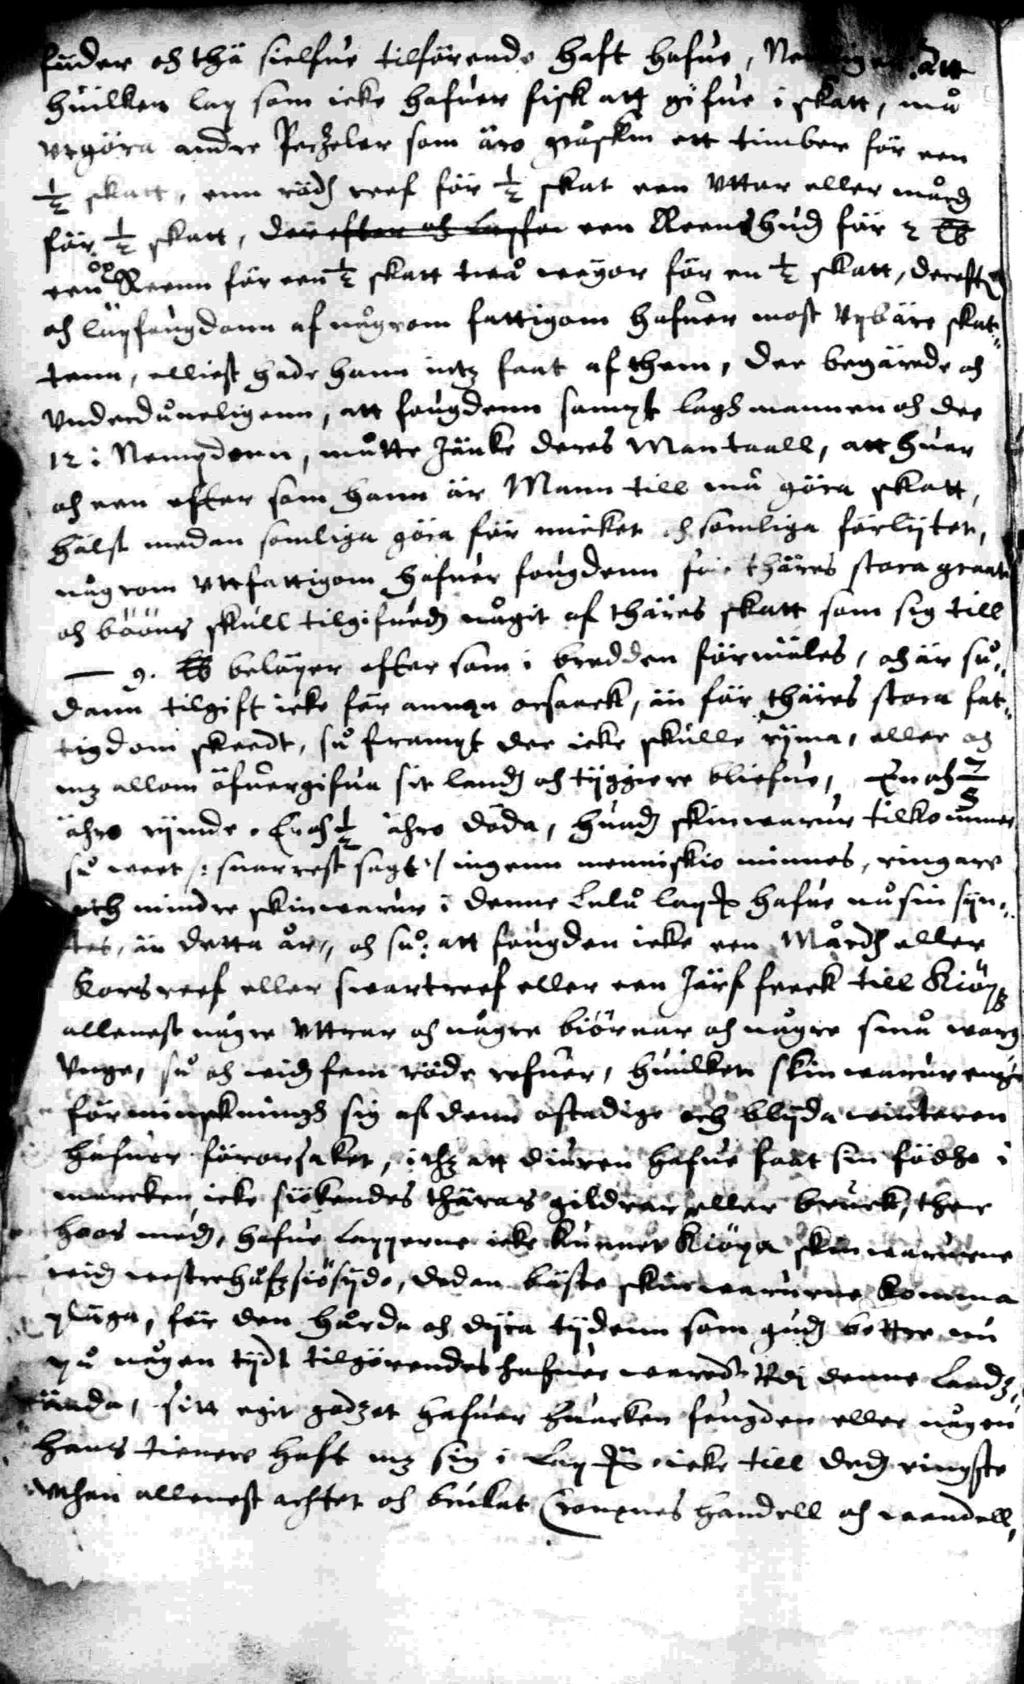 fader och thä sielfue tilförende haft hafue, att
huilken lap som icke hafuer fisk att gifue i skatt, må
vtgöra andre Perzeler som äro gråskin ett timber för een
½ skatt, enn rödh reef för ½ skat een Vtter eller mård
för ½ skatt, een Reenshud för 2 ℔
een Reenn för een ½ skatt twå wayor för en ½ skatt, dereft
och lapfougdann af någrom fattigom hafuer most vpbäre skat=
tenn, elliest hade hann intz faat af them, Dee begärede och
vnderdåneligenn, att fougdenn sampt laghmannen och dee
12 i Nempdenn, måtte Jänke deres Mantaall, att huar
och een efter som hann är Mann till må göra skatt,
hälst medan somliga göra för micket och somliga förlijtet,
någrom vttfattigom hafuer fougdenn för thäres stora graat
och bööns skull tilgifuedh någit af thäres skatt som sig till
— 9. ℔ belöper efter som i bredden förmäles, och är så=
dann tilgift icke för annan orsaack, än för thäres stora fat=
tigdom skeedt, så frampt dee icke skulle ryma, eller och
mz allom öfuergifua sit landh och tyggiere bliefue, En och
åhrs rymde, En och ½ åhrs döda, huadh skinwarur tilkommer
så weet /: snarrest sagt :/ ingenn menniskio minnes, ringare
och mindre skinwarur i denne Lulå lapp hafue nåsin syn=
tes, än detta år, och så att fougden icke een Mårdh eller
Korsreef eller swartreef eller een Järf feeck till Kiöps
allenest någre Vttrar och någre biörnar och någre små warg
Vnge, så och widh fem röde refuer, huilken skinwarur
förminsknings sig af denn ostadige och blijda winteren
hafuer förorsaket, i thz att diuren hafue faat sin födhe i
marcken icke siökendes thäras gildrar eller bruck, ther
hoos medh, hafue Lapperne icke kunnet Kiöpa skinwarurne
widh westrehafzsiösijdo, dedan bäste skinwarurne komma
pläga, för den hårda och dyra tijdenn som gudh bettre nu
på någen tijdt tilgörendes hafuer waredt Vdi denne Landz
ända, sitt egit godzet hafuer huarken fougden eller någen
hans tienere haft mz sig i Lapp icke till dedh ringste
vthan allenest achtet och brukat Cronnes handell och wandell,